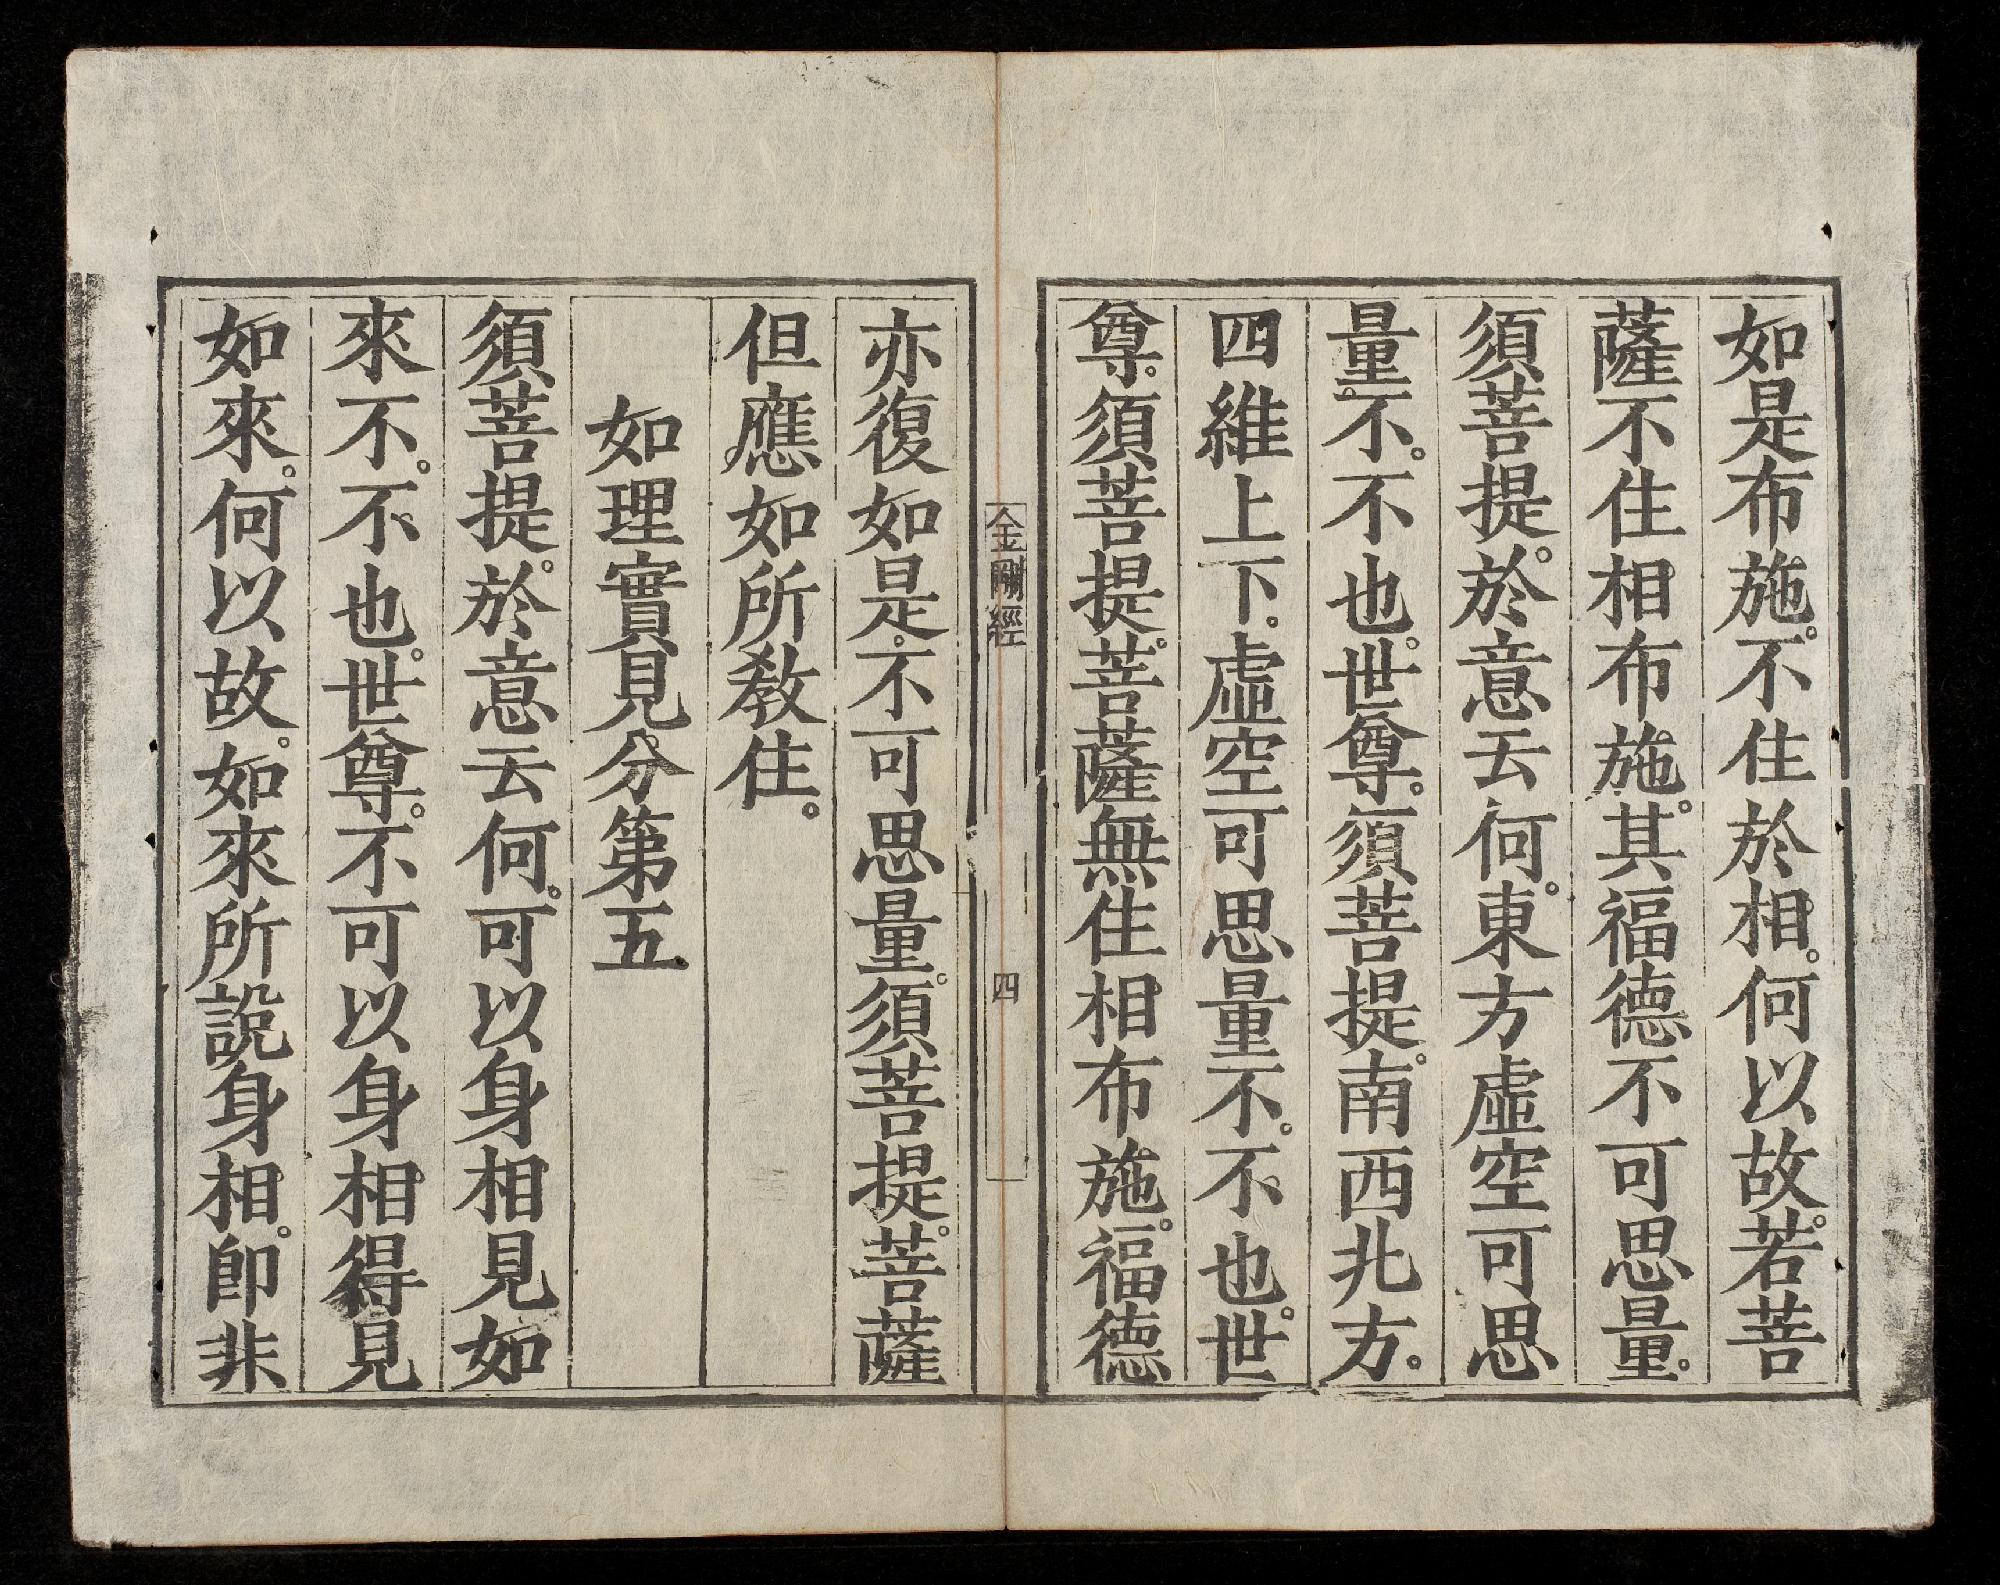 如是布施。不住於相。何以故。若菩
薩不住相布施。其福德不可思量。
須菩提。於意云何。東方虛空可思
量。不。不也。世尊。須菩提。南西北方。
四維上下。虛空可思量不。不也。世
尊。須菩提。菩薩無住相布施。福德
金剛經
四
亦復如是。不可思量。須菩提。菩薩
但應如所教住。
如理實見分第五
須菩提。於意云何。可以身相見如
來不。不也。世尊。不可以身相得見
如來。何以故。如來所說身相。即非